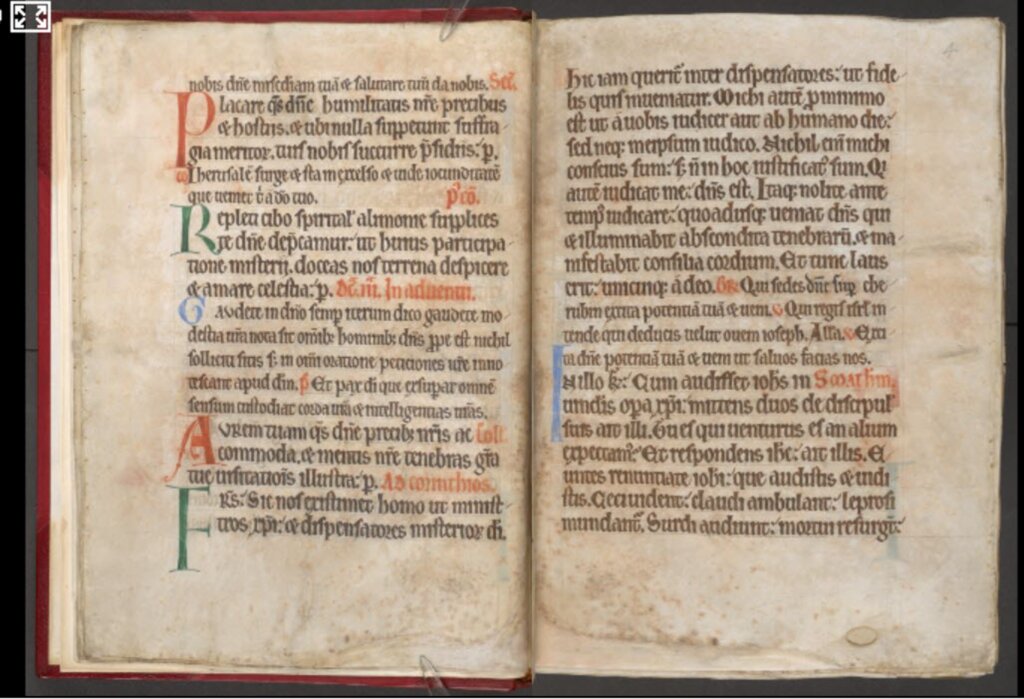 nobis dñe miscdiam tuã & salutare tuũ da nobis. Sec̃.
Placare qs dñe humilitatis nr̃e precibus
& hostiis. & ubi nulla suppetunt suffra-
gia meritoꝝ. tuis nobis succurre p̃sidiis: p.
co Iherusalẽ surge & sta in excelso & uide iocunditatẽ
que ueniet t̃ a dõ tuo. p̃ cõ.
Repleti cibo spiritał alimonie supplices
te dñe dep̃camur: ut huius participa-
tione misterii. doceas nos terrena despicere
& amare celestia: p. Dc̃. iii. In aduentu.
Gaudete in dño semp iterum dico gaudete mo-
destia uꝛ̃a nota sit omĩbꝫ hominibꝫ dñs ꝓpe est nichil
solliciti sitis sꝫ in omĩ oratione peticiones uꝛ̃e inno
tescant apud dm̃. p̃ Et pax di que exsuperat omnẽ
sensum custodiat corda uꝛ̃a & intelligentias uꝛ̃as.
Aurem tuam qs dñe precibꝫ nr̃is ac coll̃
commoda. & mentis nr̃e tenebras gr̃a
tue uisitatiõis illustra: p. Ad corinthios.
FRS: Sic nos existimet homo ut minist-
tros xp̃i: & dispensatores misterioꝝ di.
4
hic iam querit̃ inter dispensatores: ut fide-
lis quis inueniatur. Michi autẽ ꝓ minimo
est ut a uobis iudicer aut ab humano die:
sed neqꝫ meipsum iudico. Nichil em̃ michi
conscius sum: sꝫ ñ in hoc iustificatꝰ sum. Qi
autẽ iudicat me: dñs est. Itaqꝫ nolite ante
tempꝰ iudicare: quoadusqꝫ ueniat dñs qui
& illuminabit abscondita tenebrarũ. & ma-
nifestabit consilia cordium. Et tunc laus
erit: unicuiqꝫ a deo. Gr̃. Qui sedes dñe sup̃ che
rubim excita potentiã tuã & ueni. v Qui regis isrł in
tende qui deducis uelut ouem ioseph. Alła. v Exci
ta dñe potentiã tuã & ueni ut saluos facias nos.
In illo t̃: Cum audisset iohs in S. math̃m.
uinclis opa xp̃i: mittens duos de discipuł
suis ait illi. Tu es qui uenturus es an alium
expectamꝰ? Et respondens ihc̃: ait illis. E
untes renuntiate iohi: que audistis & uidi
stis. Ceci uident: claudi ambulant: leprosi
mundant̃. Surdi audiunt: mortui resurgt̃: